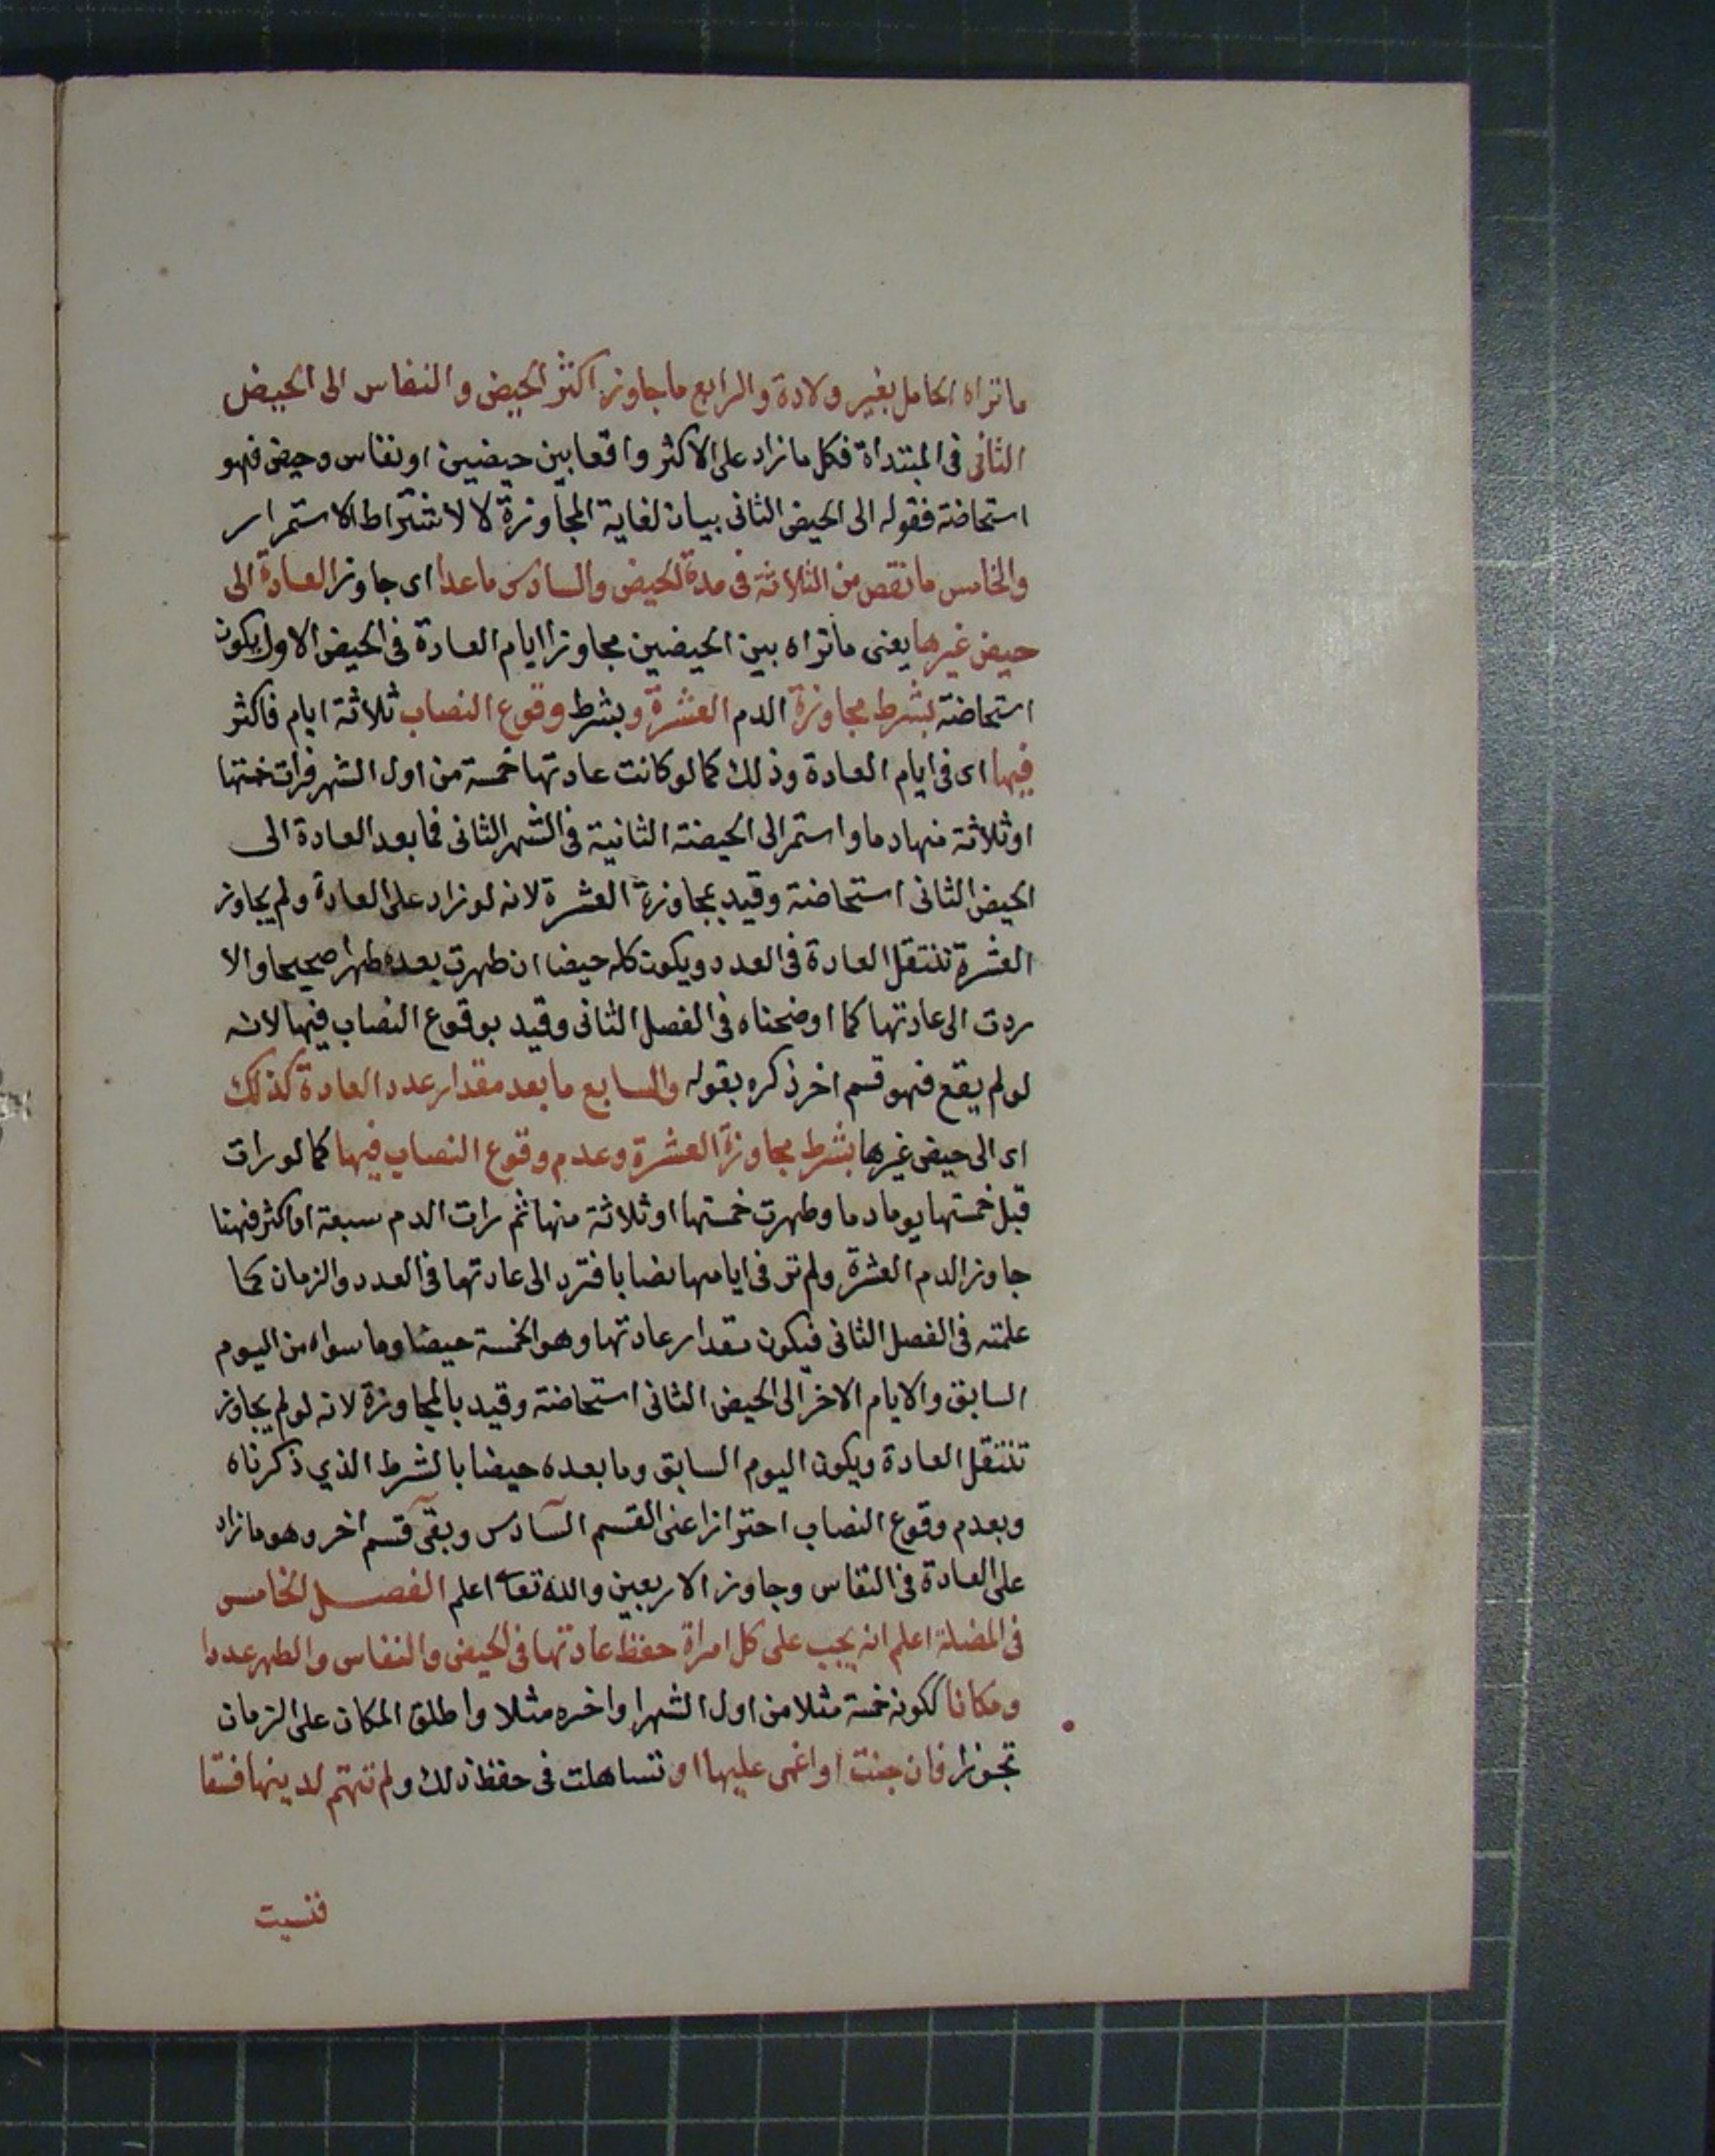 ماتراه الحامل بغير ولادة والرابع ماجاوز اكثر الحيض والنفاس الى الحيض
الثانى فى المبتداة فكل مازاد على الاكثر واقعا بين حيضين او نفاس وحيض فهو
استحاضة فقوله الى الحيض الثانى بيان لغاية المجاوزة لا لاشتراط الاستمرار
والخامس مانقص من الثلاثة فى مدة الحيض والسادس ماعدا اى جاوز العادة الى
حيض غيرها يعنى ماتراه بين الحيضين مجاوزا ايام العادة فى الحيض الاول يكون
استحاضة بشرط مجاوزة الدم العشرة وبشرط وقوع النصاب ثلاثة ايام فاكثر
فيها اى فى ايام العادة وذلك كما لو كانت عادتها خمسة من اول الشهر فرات خمستها
او ثلاثة منها دما واستمر الى الحيضة الثانية فى الشهر الثانى فما بعد العادة الى
الحيض الثانى استحاضة وقيد بمجاوزة العشرة لانه لو زاد على العادة ولم يجاوز
العشرة تنتقل العادة فى العدد ويكون كله حيضا ان طهرت بعده طهرا صحيحا والا
ردت الى عادتها كما اوضحناه فى الفصل الثانى وقيد بوقوع النصاب فيها لانه
لو لم يقع فهو قسم اخر ذكره بقوله والسابع ما بعد مقدار عدد العادة كذلك
اى الى حيض غيرها بشرط مجاوزة العشرة وعدم وقوع النصاب فيها كما لو رات
قبل خمستها يوما دما وطهرت خمستها او ثلاثة منها ثم رات الدم سبعة او اكثر فهنا
جاوز الدم العشرة ولم تر فى ايامها نصابا فترد الى عادتها فى العدد والزمان كما
علمته فى الفصل الثانى فيكون مقدار عادتها وهو الخمسة حيضا وما سواه من اليوم
السابق والايام الاخر الى الحيض الثانى استحاضة وقيد بالمجاوزة لانه لو لم يجاوز
تنتقل العادة ويكون اليوم السابق وما بعده حيضا بالشرط الذي ذكرناه
وبعدم وقوع النصاب احترازا عن القسم السادس وبقى قسم اخر وهو ما زاد
على العادة فى النفاس وجاوز الاربعين والله تعا اعلم الفصل الخامس
فى المضلة اعلم انه يجب على كل امراة حفظ عادتها فى الحيض والنفاس والطهر عددا
ومكانا ككونه خمسة مثلا من اول الشهر او اخره مثلا واطلق المكان على الزمان
تجوزا فان جنت او اغمى عليها او تساهلت فى حفظ ذلك ولم تهتم لدينها فسقا
فنسيت